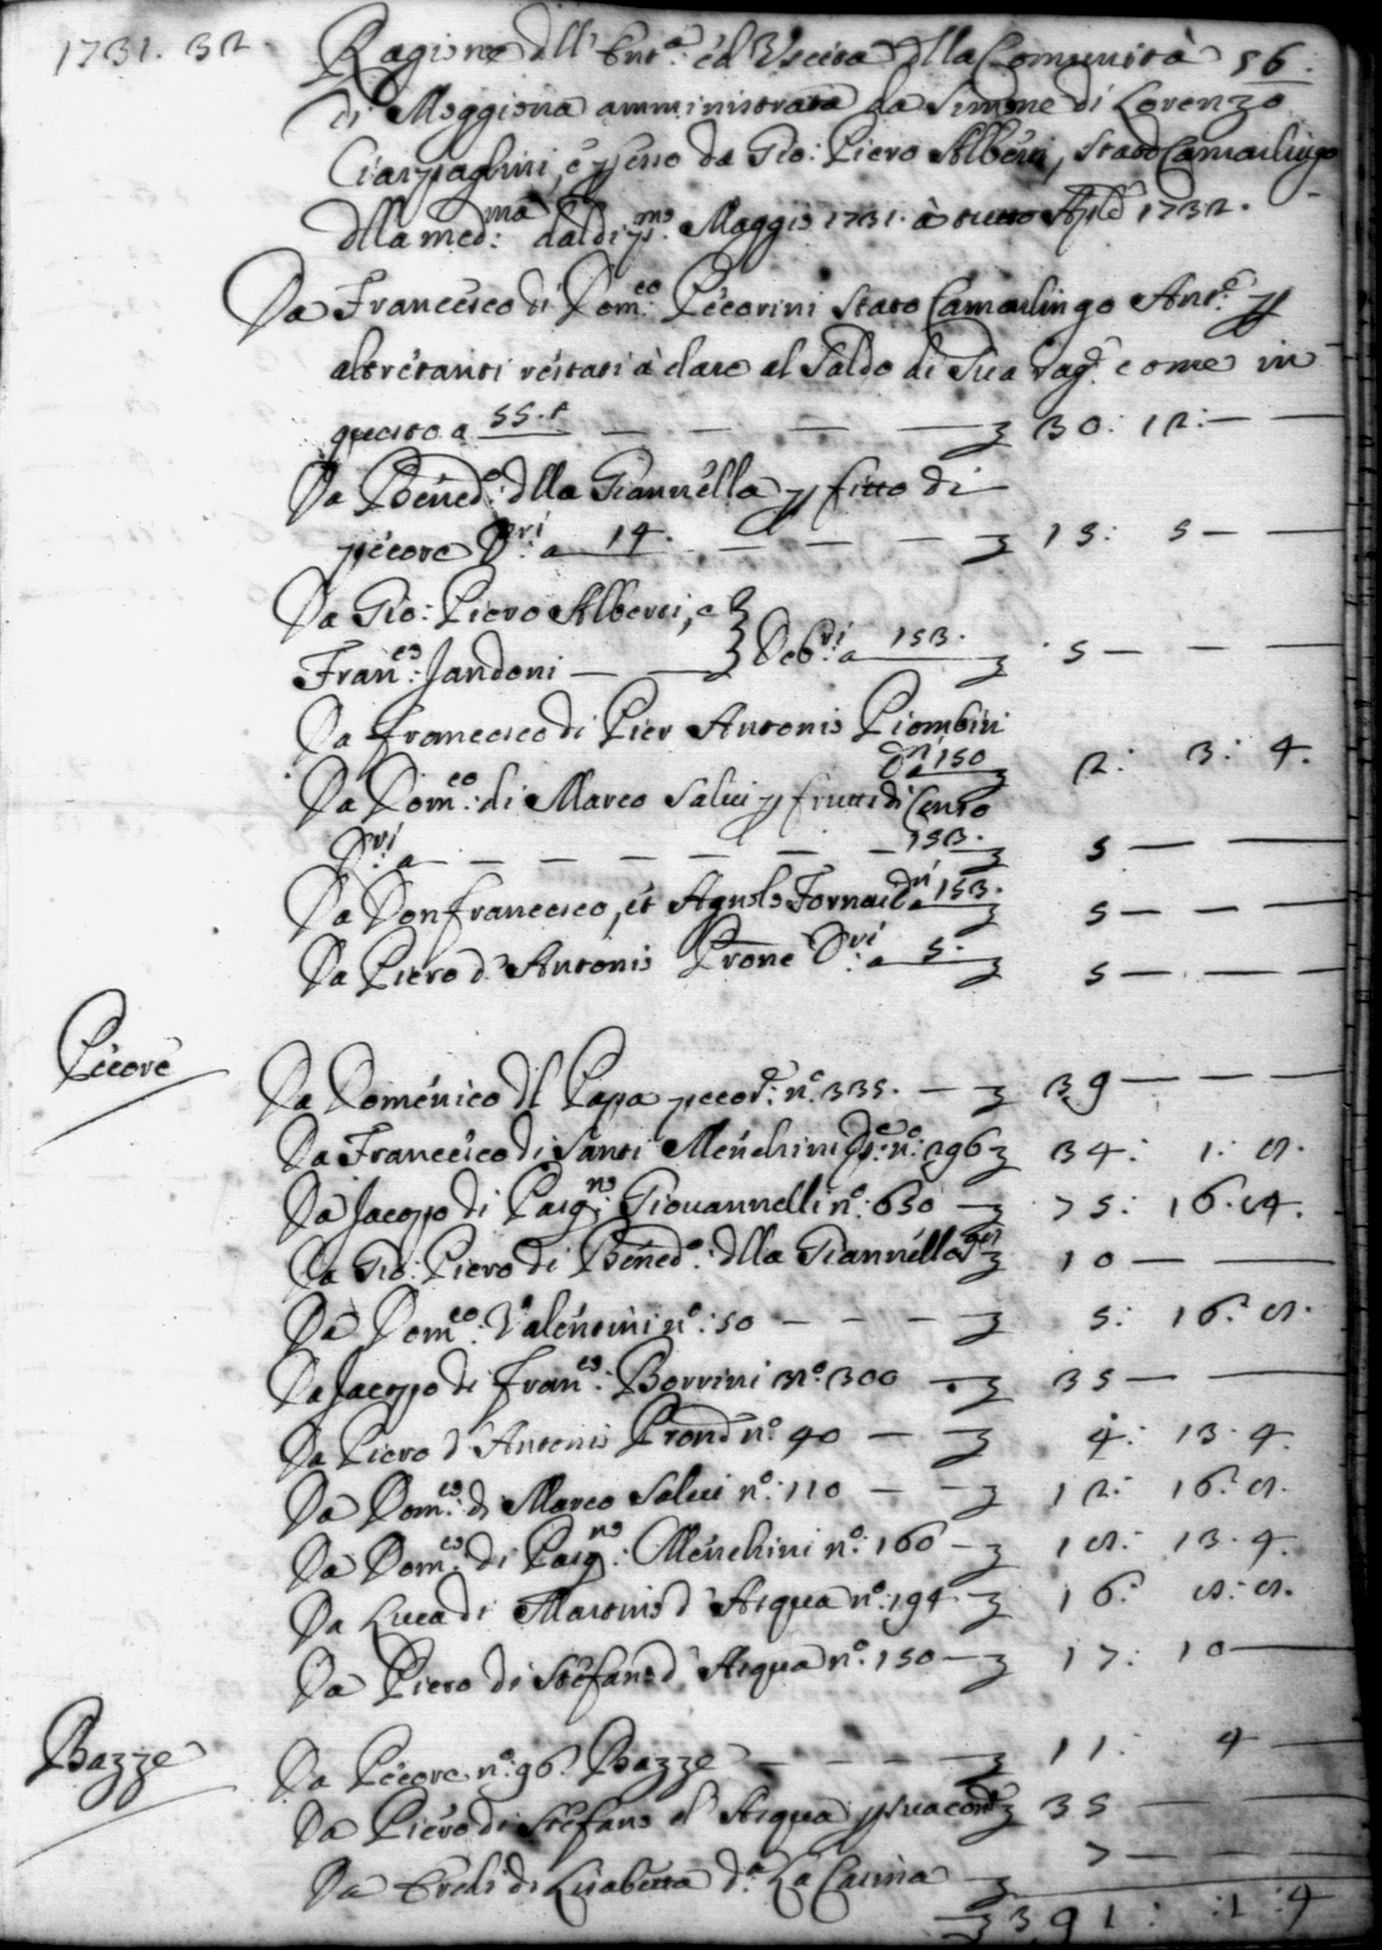 1731. 32 Ragione dll' Entᵃ: ed Uscita dlla Comunità 56.
di Moggiona amministrata da Simone di Lorenzo
Ciarpaglini, e p esso da Gio: Piero Alberti, stato Camarlingo
dlla medᵐᵃ: dal dì pᵐᵒ: Maggio 1731. à tutto Aple 1732.
Da Francesco di Domᶜᵒ: Pecorini stato Camarlingo Antᵉ: p
altretanti restati à dare al Saldo di Sua rag: come in
questo a 55.t — — — — 30: 12: —
Da Benedᵒ: dlla Giannella p fitto di
pecore Dʳⁱ: a 14. — — — — 15: 5 —
Da Gio: Piero Alberti, e
Franᶜᵒ: Jandoni — — Debʳⁱ: a 153. 5 — — —
Da Francesco di Pier Antonio Piombini
Dʳⁱ a 150 2: 3: 4.
Da Domᶜᵒ: di Marco Salvi p frutti di Censo
Dʳⁱ: a — — — — — — 153. 5 — —
Da Don Francesco, et Agnolo Fornai Dʳⁱ a 153. 5 — — —
Da Piero d'Antonio Prone Dʳⁱ: a 5. 5 — — —
Pecore
Da Domenico dl Papa pecore: nᵒ: 335. — 39 — — —
Da Francesco di Santi Menchini pᵉ: nᵒ: 296 34: 1: 8.
Da Jacopo di Pasqⁿᵒ: Giouannelli nᵒ: 650 — 75: 16. 8.
Da Gio: Piero di Benedᵒ: dlla Giannella 10 — —
Da Domᶜᵒ: Valentini nᵒ: 50 — — — 5: 16: 8.
Da Jacopo di Franᶜᵒ: Borrini nᵒ: 300 — 35 — —
Da Piero d'Antonio Prone nᵒ: 40 — — 4: 13. 4.
Da Domᶜᵒ: di Marco Salvi nᵒ: 110 — — 12: 16: 8.
Da Domᶜᵒ: di Pasqⁿᵒ: Menchini nᵒ: 160 — 18: 13. 4.
Da Luca di Martino d'Acqua nᵒ: 194. 16: 8: 8.
Da Piero di Stefano d'Acqua nᵒ: 150 — 17: 10 —
Bazze
Da Pecore nᵒ: 96. Bazze — — — — 11: 4 —
Da Piero di Stefano d'Acqua p sua cond 35 — —
Da Eredi di Lisabetta dᵃ: La Casina 7 — — —
391: :1:4